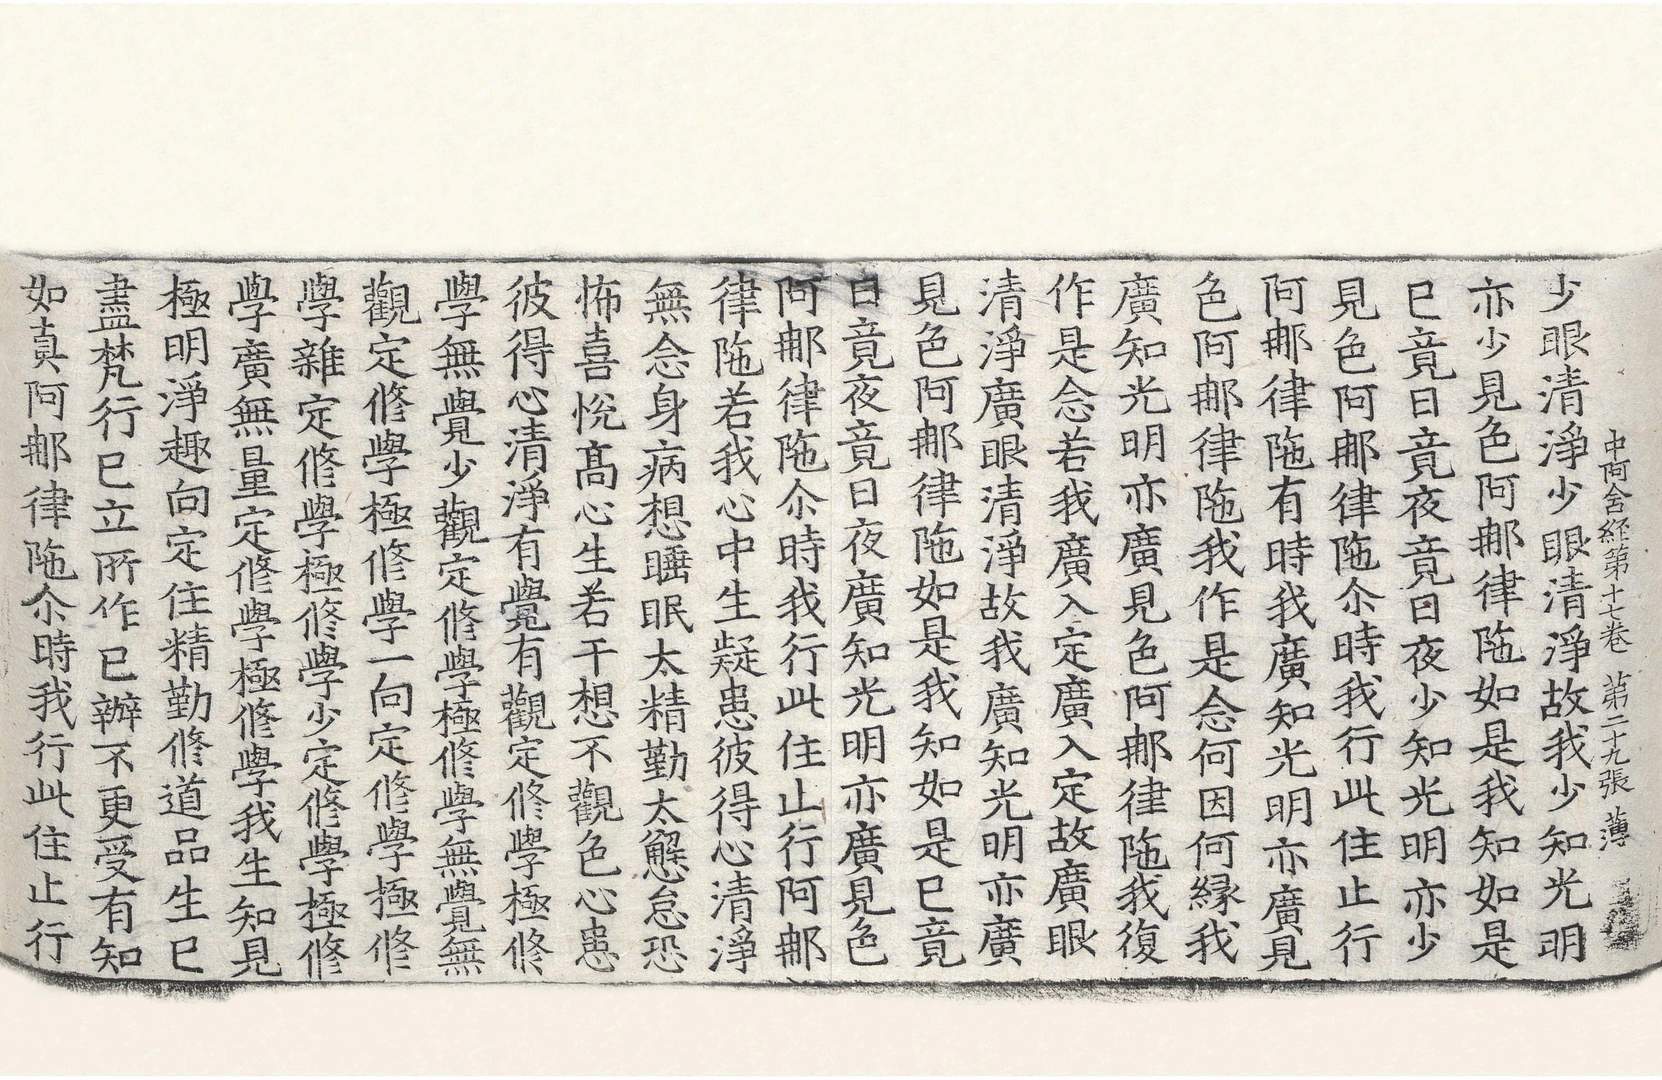 中阿含経第十七卷 第二十九張 薄
少眼清淨少眼清淨故我少知光明
亦少見色阿那律陁如是我知如是
已竟日竟夜竟日夜少知光明亦少
見色阿那律陁尒時我行此住止行
阿那律陁有時我廣知光明亦廣見
色阿那律陁我作是念何因何縁我
廣知光明亦廣見色阿那律陁我復
作是念若我廣入定廣入定故廣眼
清淨廣眼清淨故我廣知光明亦廣
見色阿那律陁如是我知如是已竟
日竟夜竟日夜廣知光明亦廣見色
阿那律陁尒時我行此住止行阿那
律陁若我心中生疑患彼得心清淨
無念身病想睡眠太精勤太懈怠恐
怖喜悅髙心生若干想不觀色心患
彼得心清淨有覺有觀定修學極修
學無覺少觀定修學極修學無覺無
觀定修學極修學一向定修學極修
學雜定修學極修學少定修學極修
學廣無量定修學極修學我生知見
極明淨趣向定住精勤修道品生已
盡梵行已立所作已辦不更受有知
如真阿那律陁尒時我行此住止行